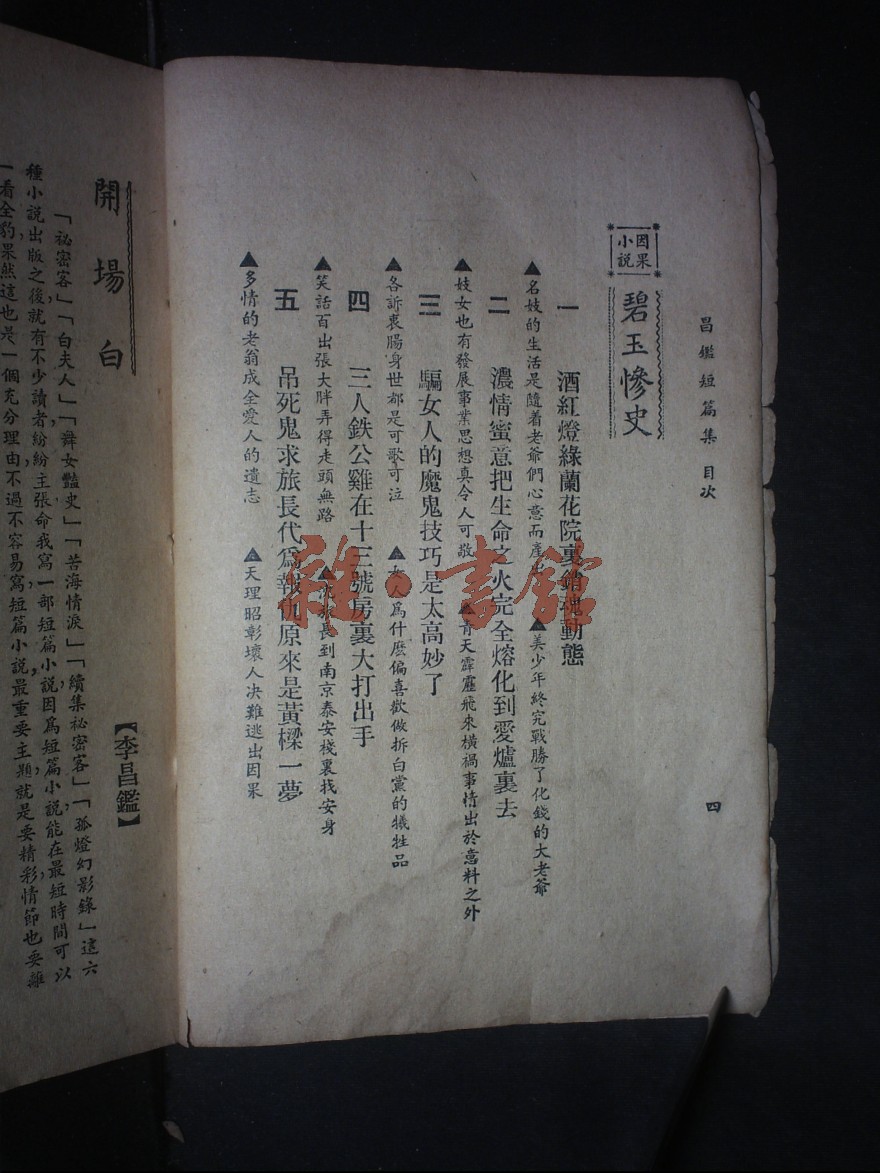 昌鑑短篇集 目次
四
因果小說
碧玉慘史
一 酒紅燈綠蘭花院裏銷魂動態
▲名妓的生活是隨着老爺們心意而產生 ▲美少年終究戰勝了化錢的大老爺
二 濃情蜜意把生命之火完全熔化到愛爐裏去
▲妓女也有發展事業思想真令人可敬 ▲青天霹靂飛來橫禍事情出於意料之外
三 騙女人的魔鬼技巧是太高妙了
▲各訴衷腸身世都是可歌可泣 ▲女人爲什麽偏喜歡做拆白黨的犧牲品
四 三人鉄公雞在十三號房裏大打出手
▲笑話百出張大胖弄得走頭無路 ▲旅長到南京泰安棧裏找安身
五 吊死鬼求旅長代爲報仇原來是黃樑一夢
▲多情的老翁成全愛人的遺志 ▲天理昭彰壞人决難逃出因果
開場白
【李昌鑑】
「祕密客」「白夫人」「舞女豔史」「苦海情淚」「續集祕密客」「孤燈幻影錄」這六
種小說出版之後，就有不少讀者紛紛主張命我寫一部短篇小說，因爲短篇小說能在最短時間可以
一看全豹，果然這也是一個充分理由，不過不容易寫，短篇小說最重要主題就是要精彩情節也要離
雅·書館